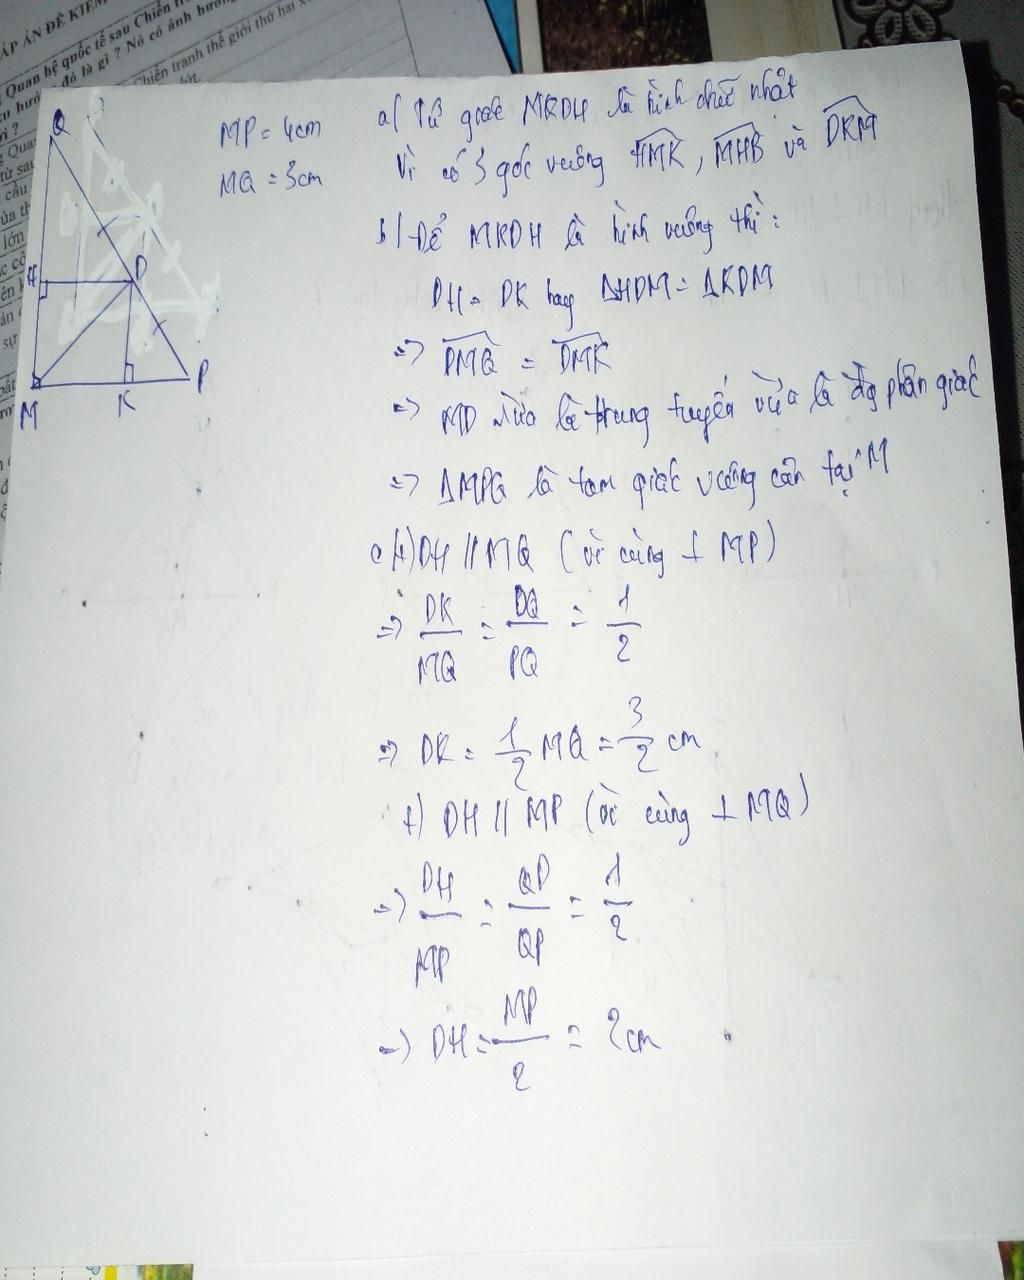 ÁP ÁN ĐỀ KIỂM
Quan hệ quốc tế sau Chiến tr
đó là gì ? Nó có ảnh hưởng
Chiến tranh thế giới thứ hai
Q
H
D
M
K
P
MP = 4cm
MQ = 3cm
a) Tứ giác MKDH là hình chữ nhật
Vì có 3 góc vuông HMK, MHB và DKM
b) Để MKDH là hình vuông thì:
DH = DK hay ΔHDM = ΔKDM
=> DMQ = DMK
=> MD vừa là trung tuyến vừa là đg phân giác
=> ΔMPQ là tam giác vuông cân tại M
c) +) DH // MQ (vì cùng ⊥ MP)
=> DK/MQ = DQ/PQ = 1/2
=> DK = 1/2 MQ = 3/2 cm
+) DH // MP (vì cùng ⊥ MQ)
=> DH/MP = QD/QP = 1/2
=> DH = MP/2 = 2cm